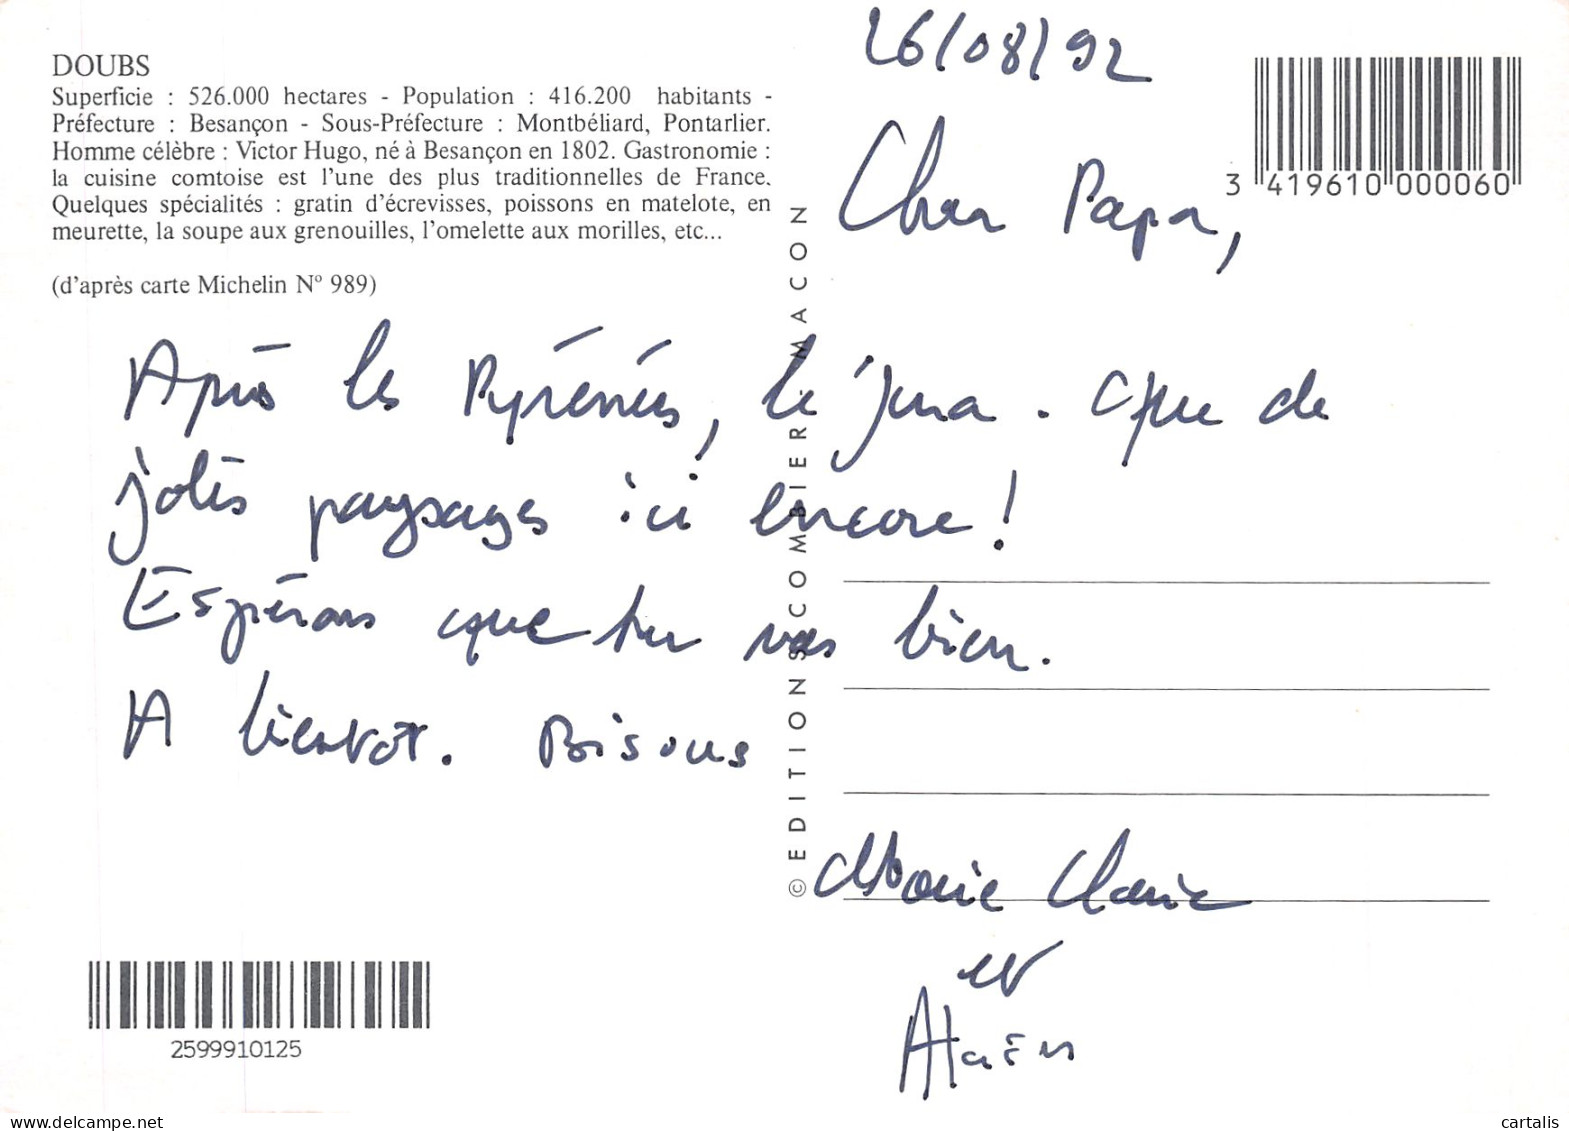 DOUBS
Superficie : 526.000 hectares - Population : 416.200 habitants -
Préfecture : Besançon - Sous-Préfecture : Montbéliard, Pontarlier.
Homme célèbre : Victor Hugo, né à Besançon en 1802. Gastronomie :
la cuisine comtoise est l'une des plus traditionnelles de France.
Quelques spécialités : gratin d'écrevisses, poissons en matelote, en
meurette, la soupe aux grenouilles, l'omelette aux morilles, etc...
(d'après carte Michelin N° 989)
26/08/92
3 419610 000060
Cher Papa,
Après les Pyrénées, le jura. Que de
jolis paysages ici encore !
Espérons que tu vas bien.
A bientôt. Bisous
Marie Claire
et
Alain
© EDITIONS COMBIER MACON
2599910125
cartalis
delcampe.net